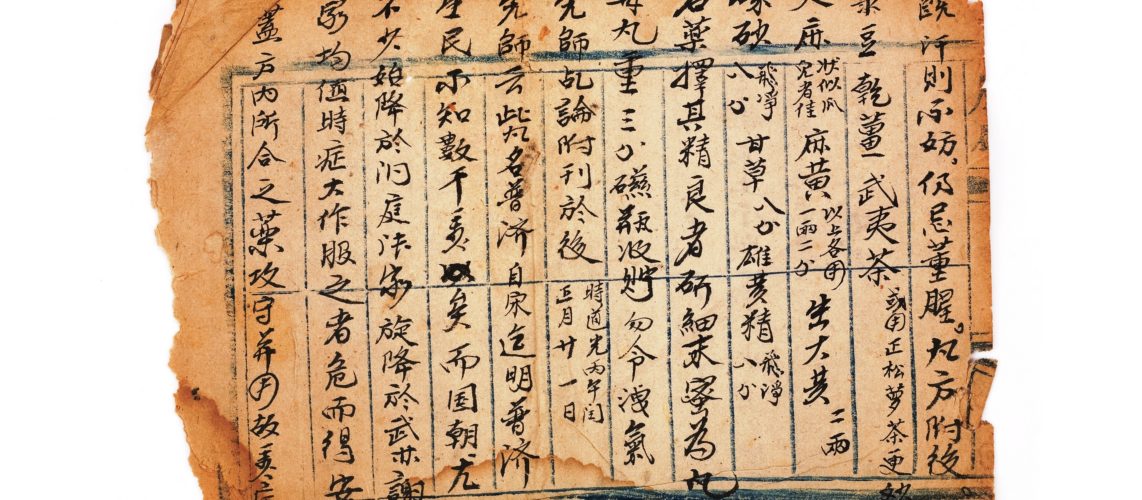 汗則不妨。仍忌葷腥。丸方附後
豆 乾薑 武夷茶 或用正松萝茶更妙
麻 狀似瓜兒者佳 麻黄 以上各用一兩二分 生大黄 二兩
砂 飛凈八分 甘草八分 雄黄精 飛淨八分
藥擇其精良者研細末蜜為丸
每丸重三分礠瓶收貯勿令洩氣
先師乩論附刊於後 時道光丙午閏正月廿一日
先師云此丸名普济自宋迄明普济
生民不知數千萬矣而国朝尤
不少始降於泂庭法家旋降於武林謝
家均值時症大作服之者危而得安
蓋方内所合之藥攻守并用故